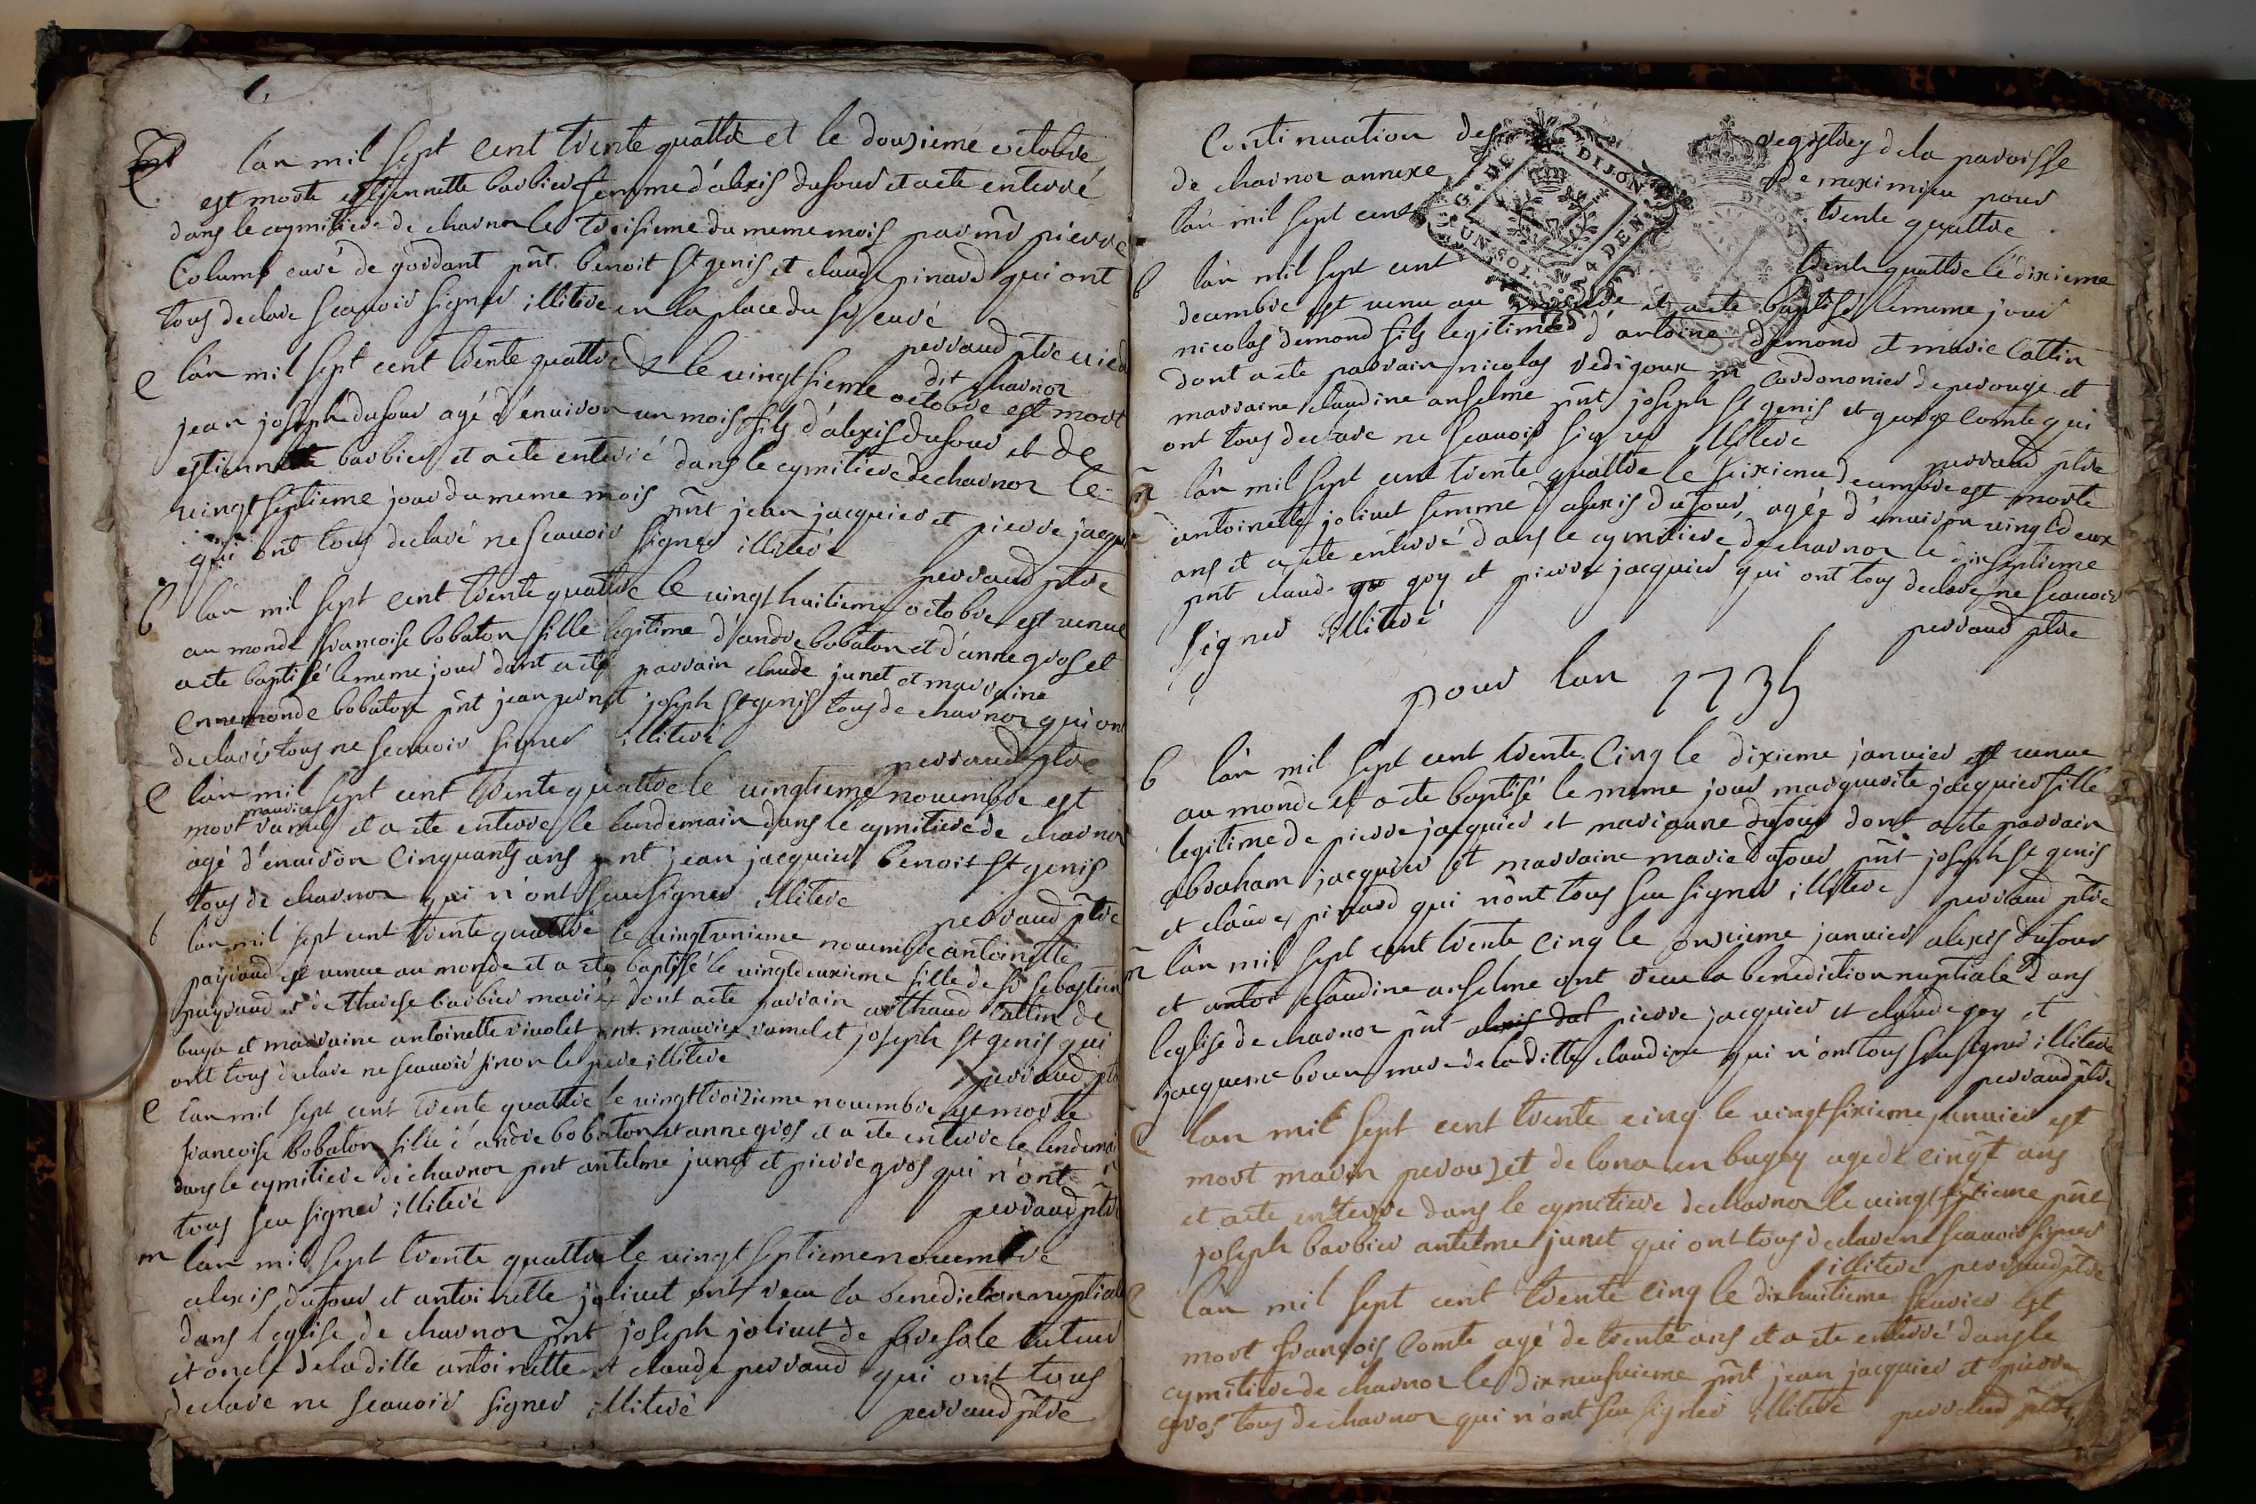 e l'an mil sept cent trente quattre et le dousieme octobre
est morte estiennette barbier femme d'alexis dufour et a ete enterré
dans le cymitiere de charnoz le troisieme du meme mois par mr pierre
Columb curé de gordant pnt benoit st genis et claude pinard qui ont
tous declare scavoir signer illiteré en la place du sr curé
perraud ptre vicr
dit charnoz
e l'an mil sept cent trente quattre & le vingtsieme octobre est mort
jean joseph dufour agé d'environ un mois fils d'alexis dufour et de
estiennette barbier et a ete enterré dans le cymitiere de charnoz le
vingt septieme jour du meme mois pnt jean jacquier et pierre jacqui
qui ont tous declaré ne scavoir signer illiteré
perraud ptre
b l'an mil sept cent trente quattre le vingt huitieme octobre est venue
au monde francoise bobaton fille legitime d'andre bobaton et d'anne gros et
a ete baptisé le meme jour dont a ete parrain claude junet et marraine
ennemonde bobaton pnt jean junet joseph st genis tous de charnoz qui ont
declarés tous ne scavoir signer illiteré
perraud ptre
e l'an mil sept cent trente quattre le vingtieme novembre est
maurice
mort ramel et a ete enterre le lendemain dans le cymitiere de charnoz
agé d'environ cinquants ans pnt jean jacquier benoit st genis
tous de charnoz qui n'ont sceu signer illitere
perraud ptre
b l'an mil sept cent trente quattre le vingtunieme novembre antoinette
payraud est venue au monde et a ete baptisé le vingtdeuxieme fille de sr sebastien
payraud et de therese barbier mariés dont a ete parrain arthaud cattin de
buya et marraine antoinette violet pnt maurice ramel et joseph st genis qui
ont tous declare ne scavoir sinon le pere illitere
perraud ptre
e l'an mil sept cent trente quattre le vingttroizieme novembre est morte
francoise bobaton fille d'andre bobaton et anne gros et a ete enterre le lendemain
dans le cymitiere de charnoz pnt antelme junet et pierre gros qui n'ont
tous sceu signer illiteré
perraud ptre
m l'an mil sept trente quattre le vingt septieme novembre
alexis dufour et antoinette jolivet ont receu la benediction nuptiale
dans l'eglise de charnoz pnt joseph jolivet de tuteur
et oncle de la ditte antoinette et claude perraud qui ont tous
declare ne scavoir signer illiteré
perraud ptre
Continuation des registres de la paroisse
de charnoz annexe de meximieu pour
l'an mil sept cent trente quattre
b l'an mil sept cent trente quattre le dixieme
decembre est venu au monde et a ete baptisé le meme jour
nicolas demond fils legitime d'antoine demond et marie Cattin
dont a ete parrain nicolas redigoux m cordonnier de perouge et
marraine claudine anselme pnt joseph st genis et george comte qui
ont tous declare ne scavoir signer illiteré
perraud ptre
l'an mil sept cent trente quattre le seizieme decembre est morte
antoinette jolivet femme d'alexis dufour agée d'environ vingt deux
ans et a ete enterré dans le cymitiere de charnoz le dixseptieme
pnt claude goy et pierre jacquier qui ont tous declare ne scavoir
signer illiteré
perraud ptre
pour l'an 1735
b l'an mil sept cent trente cinq le dixieme janvier est venue
au monde et a ete baptisé le meme jour marguerite jacquier fille
legitime de pierre jacquier et marianne dufour dont a ete parrain
abraham jacquier et marraine marie dufour pnt joseph st genis
et claude pinard qui n'ont tous sceu signer illitere perraud ptre
m l'an mil sept cent trente cinq le onzieme janvier alexis dufour
et claudine anselme ont receu la benediction nuptiale dans
l'eglise de charnoz pnt pierre jacquier et claude goy et
jacqueme brun mere de la ditte claudine qui n'ont tous sceu signer illiteré
perraud ptre
e l'an mil sept cent trente cinq le vingtsixieme janvier est
mort marin perouzet de lona en bugey agé de cinqt ans
et a ete enterre dans le cymitiere de charnoz le vingtseptieme pnt
joseph barbier antelme junet qui ont tous declare ne scavoir signer
illitere perraud ptre
e l'an mil sept cent trente cinq le dixhuitieme fevrier est
mort françois Comte agé de trente ans et a ete enterré dans le
cymitiere de charnoz le dixneufvieme pnt jean jacquier et pierre
gros tous de charnoz qui n'ont sceu signer illiteré perraud ptre
G. DE DIJON
UN SOL 4 DEN.
DIJON